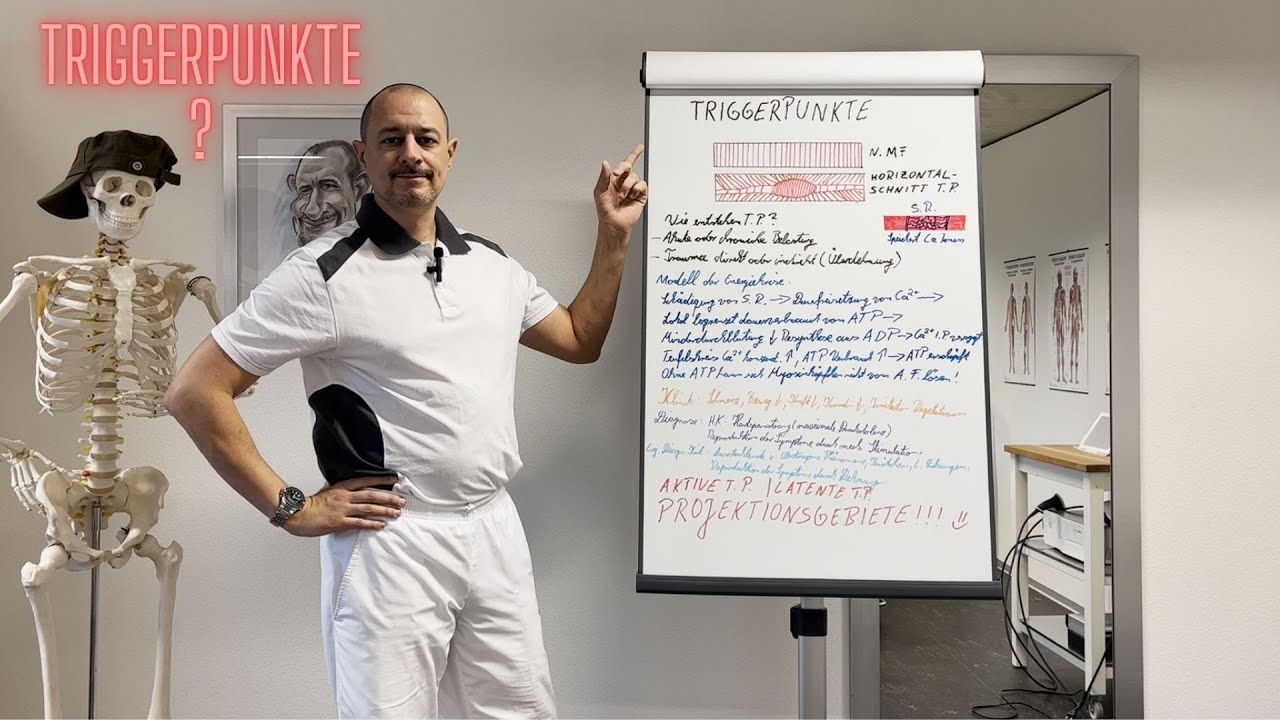 TRIGGERPUNKTE
?
TRIGGERPUNKTE
N. MF
HORIZONTAL-
SCHNITT T.P.
S.R.
Speichert Ca Ionen
Wie entstehen T.P?
- Akute oder chronische Belastung
- Trauma direkt oder indirekt (Überdehnung)
Modell der Energiekrise:
Schädigung von S.R. → Dauerfreisetzung von Ca²⁺ →
Lokal begrenzt dauerverbrauch von ATP →
Minderdurchblutung ↓ Resynthese aus ADP → Ca²⁺ I.P. versagt
Teufelskreis Ca²⁺ Konzent. ↑, ATP Verbrauch ↑ → ATP erschöpft
Ohne ATP kann sich Myosinköpfchen nicht von A.F. lösen!
Klinik: Schmerz, Beweg ↓, Kraft ↓, Koordi ↓, Irritation Vegetativum
Diagnose: HK. (maximale Druckdolenz)
Reproduktion der Symptome durch mech. Stimulation
Reproduktion der Symptome durch Dehnung
AKTIVE T.P. | LATENTE T.P.
PROJEKTIONSGEBIETE!!!